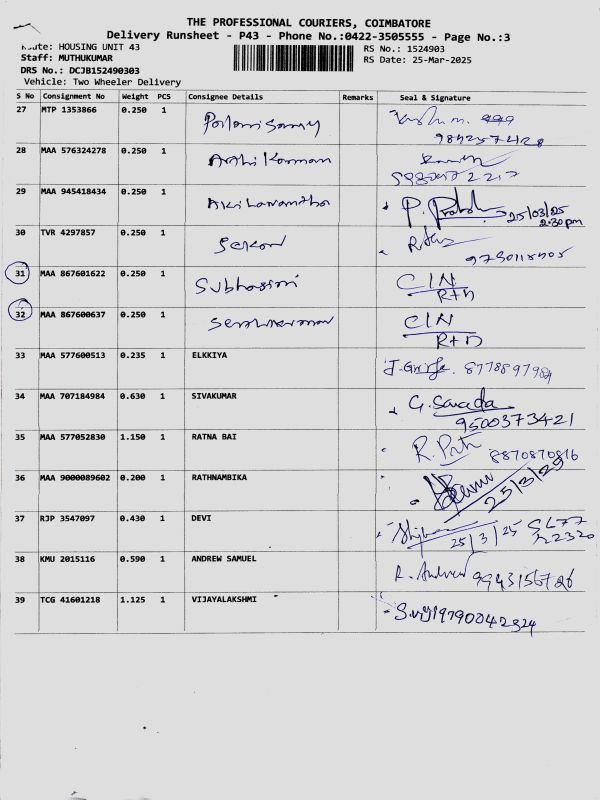 THE PROFESSIONAL COURIERS, COIMBATORE
Delivery Runsheet - P43 - Phone No.:0422-3505555 - Page No.:3
Route: HOUSING UNIT 43 RS No.: 1524903
Staff: MUTHUKUMAR RS Date: 25-Mar-2025
DRS No.: DCJB152490303
Vehicle: Two Wheeler Delivery
S No Consignment No Weight PCS Consignee Details Remarks Seal & Signature
27 MTP 1353866 0.250 1
28 MAA 576324278 0.250 1
29 MAA 945418434 0.250 1 P. 25/03/25
2.30pm
30 TVR 4297857 0.250 1
31 MAA 867601622 0.250 1 Subhasini C/N
R+D
32 MAA 867600637 0.250 1 C/N
R+D
33 MAA 577600513 0.235 1 ELKKIYA 8778897984
34 MAA 707184984 0.630 1 SIVAKUMAR G. Sarada
9500373421
35 MAA 577052830 1.150 1 RATNA BAI 8870870816
36 MAA 9000089602 0.200 1 RATHNAMBIKA
37 RJP 3547097 0.430 1 DEVI
25/3/25
38 KMU 2015116 0.590 1 ANDREW SAMUEL R. Andrew
39 TCG 41601218 1.125 1 VIJAYALAKSHMI